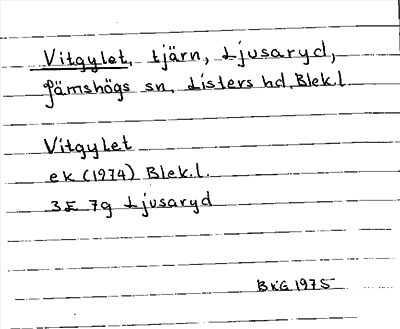 Vitgylet, tjärn, Ljusaryd,
Jämshögs sn, Listers hd, Blek.l.
Vitgylet
ek (1974) Blek.l.
3E 7g Ljusaryd
BKG 1975